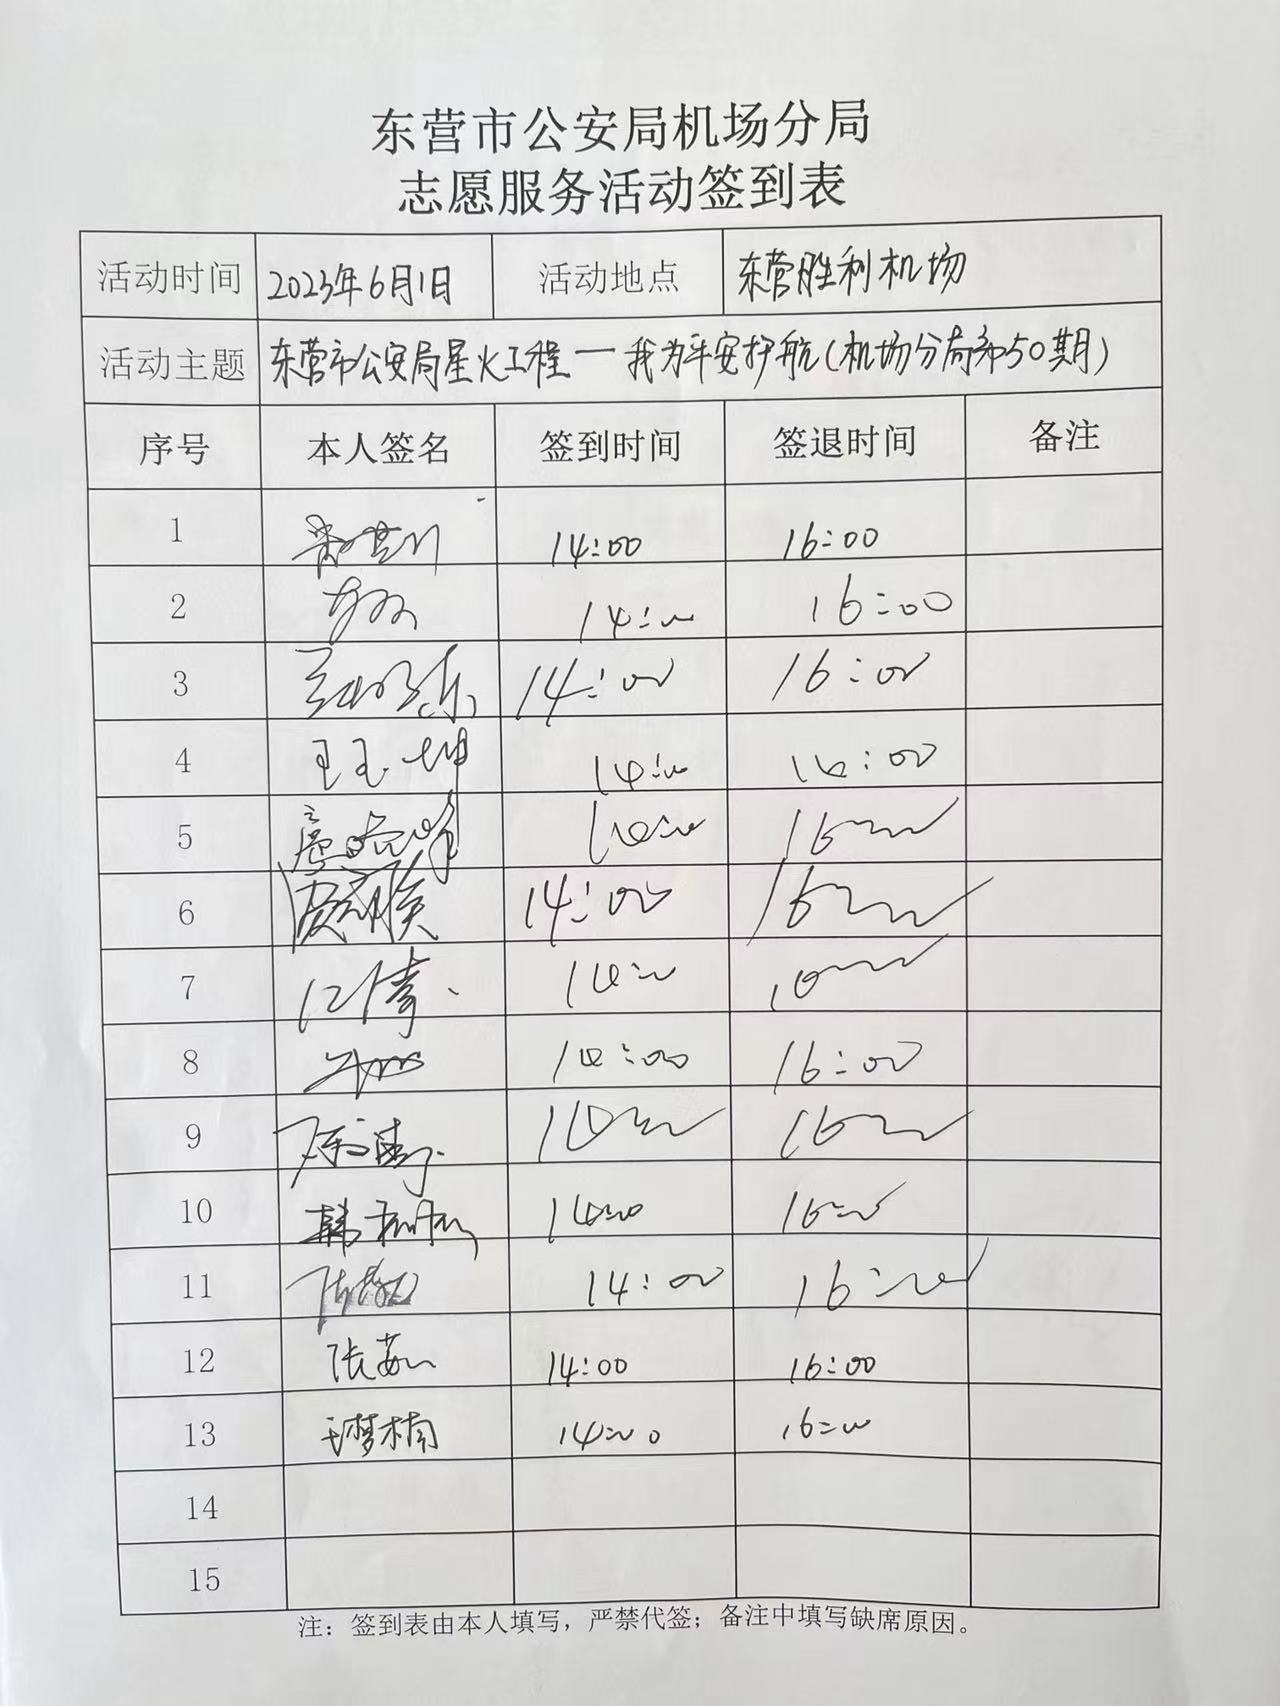 东营市公安局机场分局
志愿服务活动签到表
活动时间 2023年6月1日 活动地点 东营胜利机场
活动主题 东营市公安局星火工程一我为平安护航(机场分局第50期)
序号 本人签名 签到时间 签退时间 备注
1 14:00 16:00
2 14:00 16:00
3 14:00 16:00
4 王玉坤 14:00 16:00
5 14:00 16:00
6 14:00 16:00
7 14:00 16:00
8 14:00 16:00
9 14:00 16:00
10 14:00 16:00
11 14:00 16:00
12 张茹 14:00 16:00
13 王梦楠 14:00 16:00
14
15
注：签到表由本人填写，严禁代签；备注中填写缺席原因。